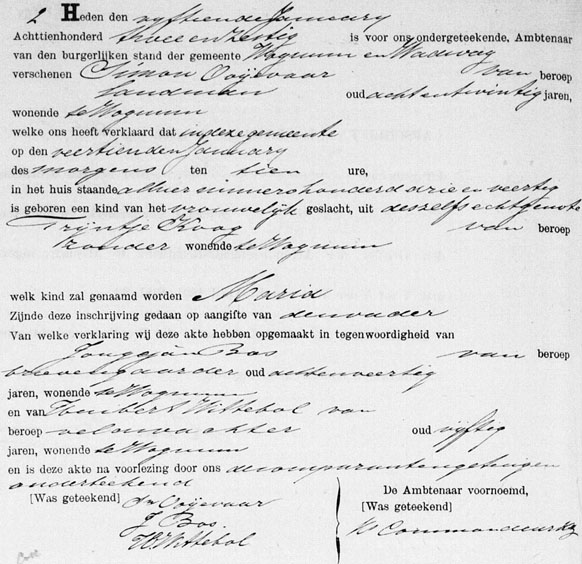 2 Heden den vyftienden January
Achttienhonderd twee en zestig is voor ons ondergeteekende, Ambtenaar
van den burgerlijken stand der gemeente Wognum en Wadway
verschenen Simon Ooijevaar van beroep
landman oud acht en twintig jaren,
wonende te Wognum
welke ons heeft verklaard dat in deze gemeente
op den veertienden January
des morgens ten tien ure,
in het huis staande alhier nummer honderd drie en veertig
is geboren een kind van het vrouwelijk geslacht, uit desselfs echtgenoote
Trijntje Koog van beroep
zonder wonende te Wognum
welk kind zal genaamd worden Maria
Zijnde deze inschrijving gedaan op aangifte van den vader
Van welke verklaring wij deze akte hebben opgemaakt in tegenwoordigheid van
Jan Bos van beroep
brievengaarder oud acht en veertig
jaren, wonende te Wognum
en van Wittebol van
beroep veldwachter oud vyftig
jaren, wonende te Wognum
en is deze akte na voorlezing door ons de comparant en getuigen
onderteekend
[Was geteekend] Sn Ooijevaar
J Bos.
Wittebol
De Ambtenaar voornoemd,
[Was geteekend]
Commandeur